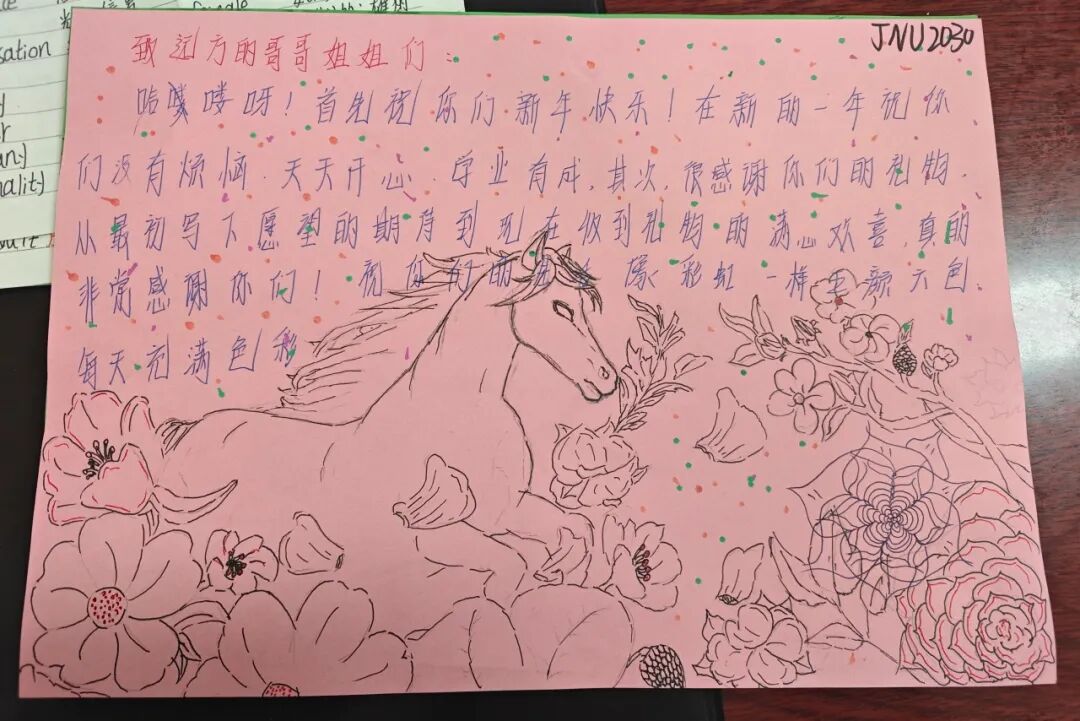 JNU2030
致远方的哥哥姐姐们：
哈喽喽呀！首先祝你们新年快乐！在新的一年祝你
们没有烦恼.天天开心.学业有成.其次,很感谢你们的礼物.
从最初写下愿望的期待到现在收到礼物的满心欢喜,真的
非常感谢你们！祝你们的生活像彩虹一样五颜六色.
每天充满色彩
sation
nality)